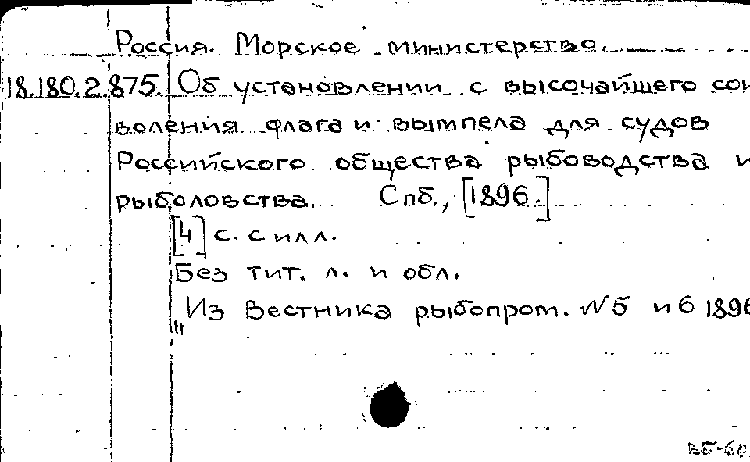 Россия. Морское министерство.
18.180.2.875. Об установлении с высочайшего соиз
воления флага и вымпела для судов
Российского общества рыбоводства и
рыболовства. Спб., [1896.]
[4] с. с илл.
Без тит. л. и обл.
"Из Вестника рыбопром. N 5 и 6 1896
ВБ-60